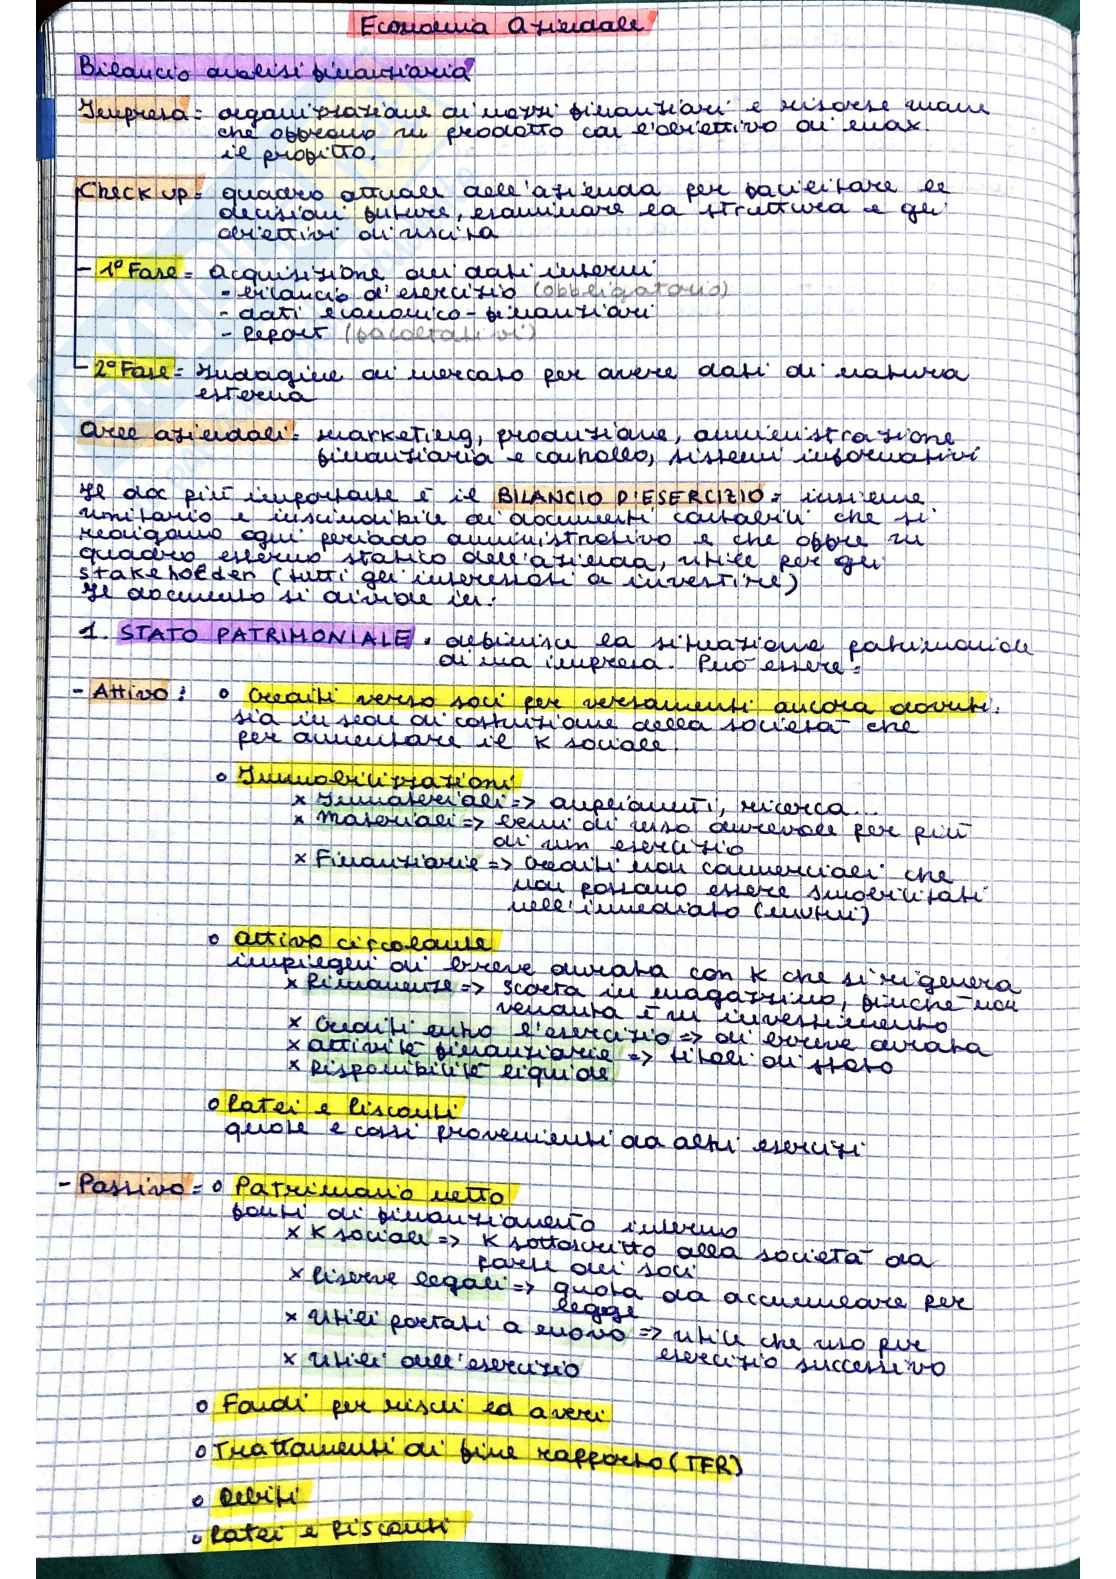 Economia Aziendale
Bilancio analisi finanziaria
Impresa = organizzazione di mezzi finanziari e risorse umane
che offrono un prodotto con l'obiettivo di max
il profitto.
Check up = quadro attuale dell'azienda per facilitare le
decisioni future, esaminare la struttura e gli
obiettivi di uscita
- 1° Fase = acquisizione dei dati interni
- bilancio d'esercizio (obbligatorio)
- dati economico-finanziari
- Report (facoltativi)
- 2° Fase = Indagine di mercato per avere dati di natura
esterna
Aree aziendali = marketing, produzione, amministrazione
finanziaria e controllo, sistemi informativi
Il doc più importante è il BILANCIO D'ESERCIZIO = insieme
unitario e inscindibile di documenti contabili che si
redigono ogni periodo amministrativo e che offre un
quadro esterno statico dell'azienda, utile per gli
stakeholder (tutti gli interessati a investire)
Il documento si divide in:
1. STATO PATRIMONIALE = definisce la situazione patrimoniale
di una impresa. Può essere =
- Attivo : o Crediti verso soci per versamenti ancora dovuti.
sia in sede di costituzione della società che
per aumentare il K sociale.
o Immobilizzazioni
x Immateriali => ampliamenti, ricerca...
x Materiali => beni di uso durevole per più
di un esercizio
x Finanziarie => crediti non commerciali che
non possono essere smobilitati
nell'immediato (mutui)
o attivo circolante
impieghi di breve durata con K che si rigenera
x Rimanenze => scorta in magazzino, finché non
venduta è un investimento
x Crediti entro l'esercizio => di breve durata
x attività finanziarie => titoli di stato
x Disponibilità liquide
o Ratei e Risconti
quote e costi provenienti da altri esercizi
- Passivo = o Patrimonio netto
fonti di finanziamento interno
x K sociale => K sottoscritto alla società da
parte dei soci
x Riserve legali => quota da accumulare per
legge
x Utili portati a nuovo => utile che uso per
esercizio successivo
x Utili dell'esercizio
o Fondi per rischi ed averi
o Trattamenti di fine rapporto (TFR)
o Debiti
o Ratei e Risconti